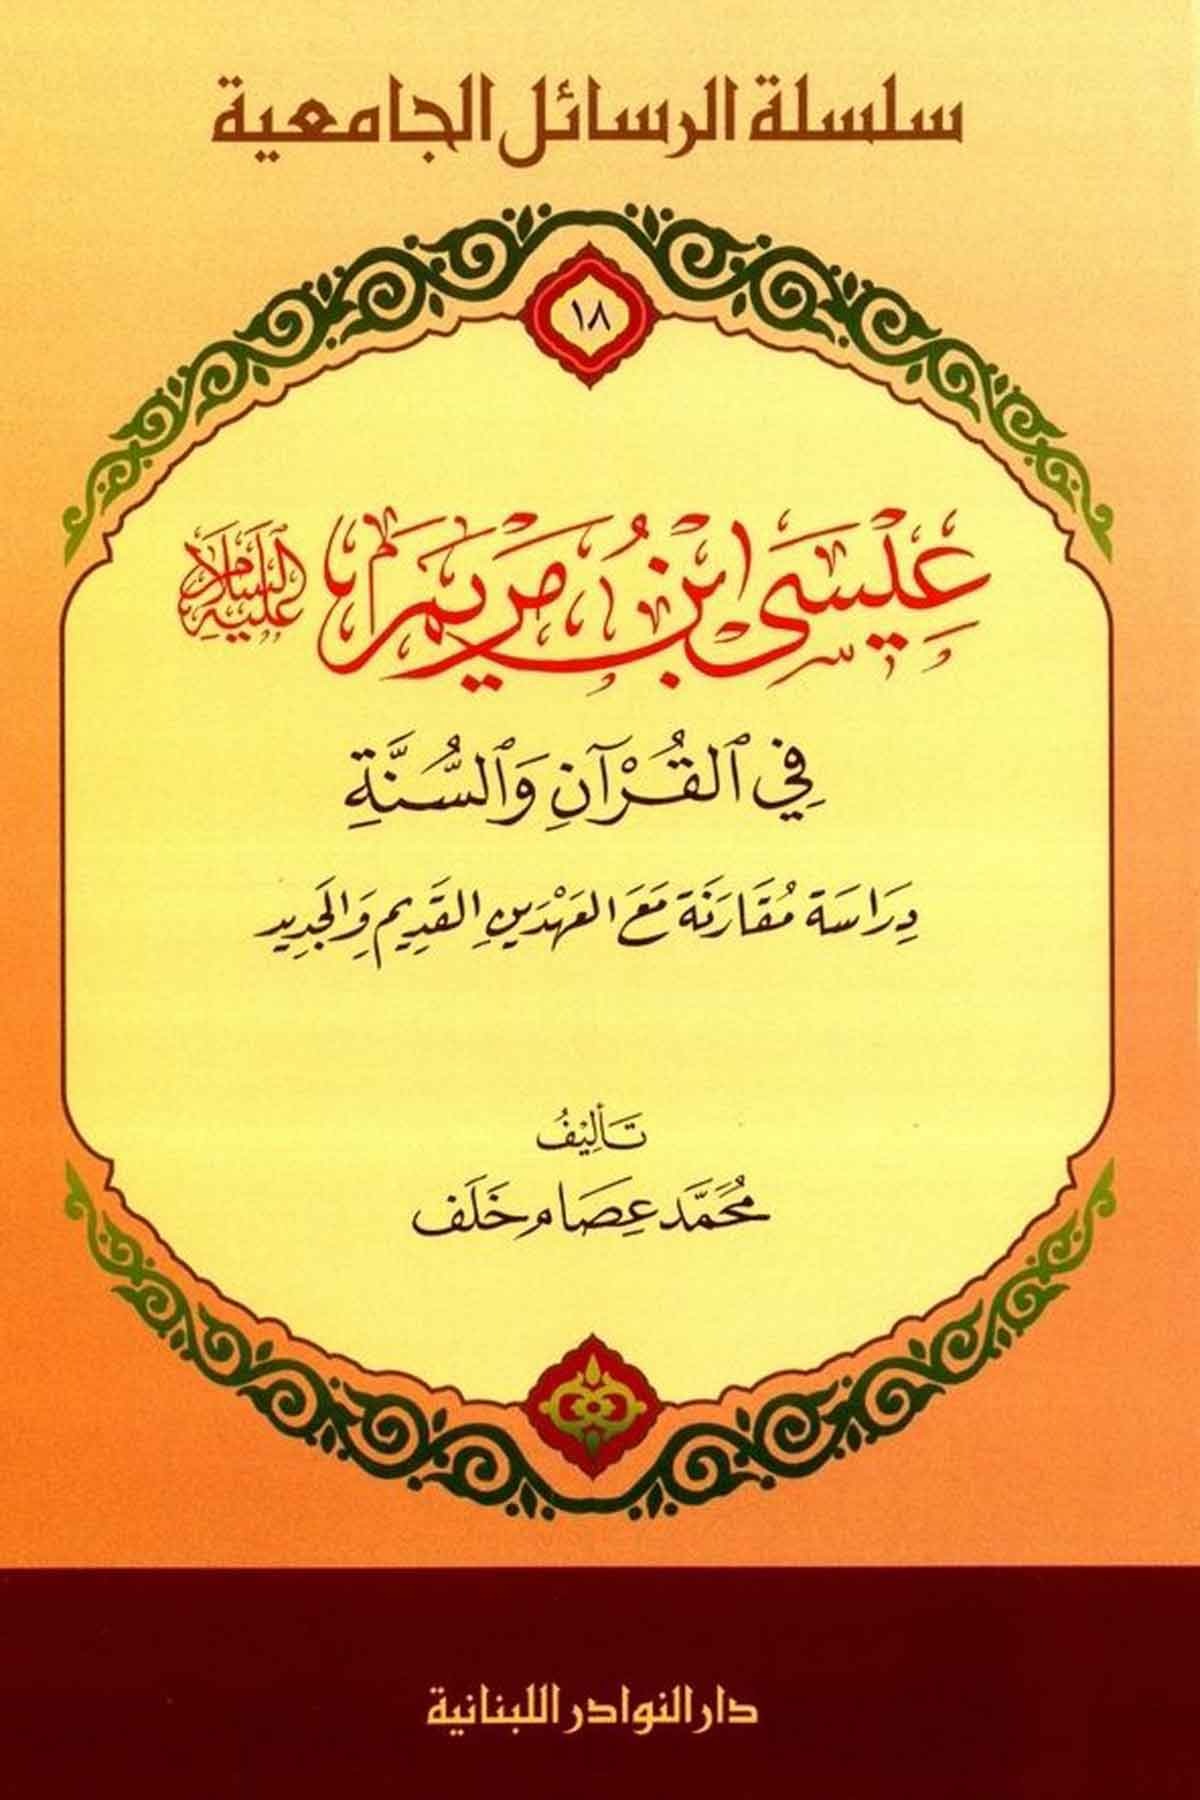 سلسلة الرسائل الجامعية
١٨
عِيسَى ابْنُ مَرْيَمَ عليه السلام
فِي ٱلْقُرْآنِ وَٱلسُّنَّةِ
دِرَاسَة مُقَارَنَة مَعَ العَهْدَينِ القَدِيم وَالجَدِيد
تَأليْفُ
مُحَمَّد عِصَام خَلَف
دار النوادر اللبنانية